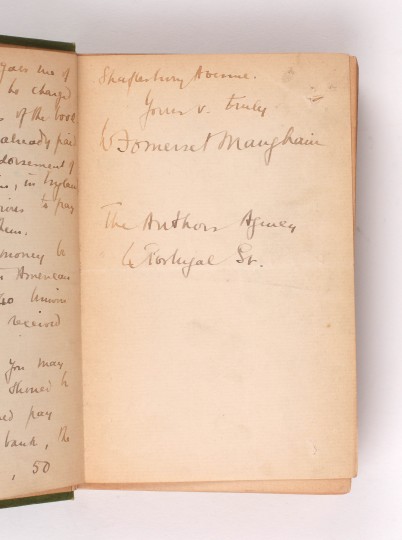 you me of
he charged
s of the book
already paid
dorsement of
in England
to pay
them.
money be
American
Union
received
you may
should be
pay
bank, the
, 50
Shaftesbury Avenue.
Yours v. truly
W Somerset Maugham
The Authors Agency
4 Portugal St.